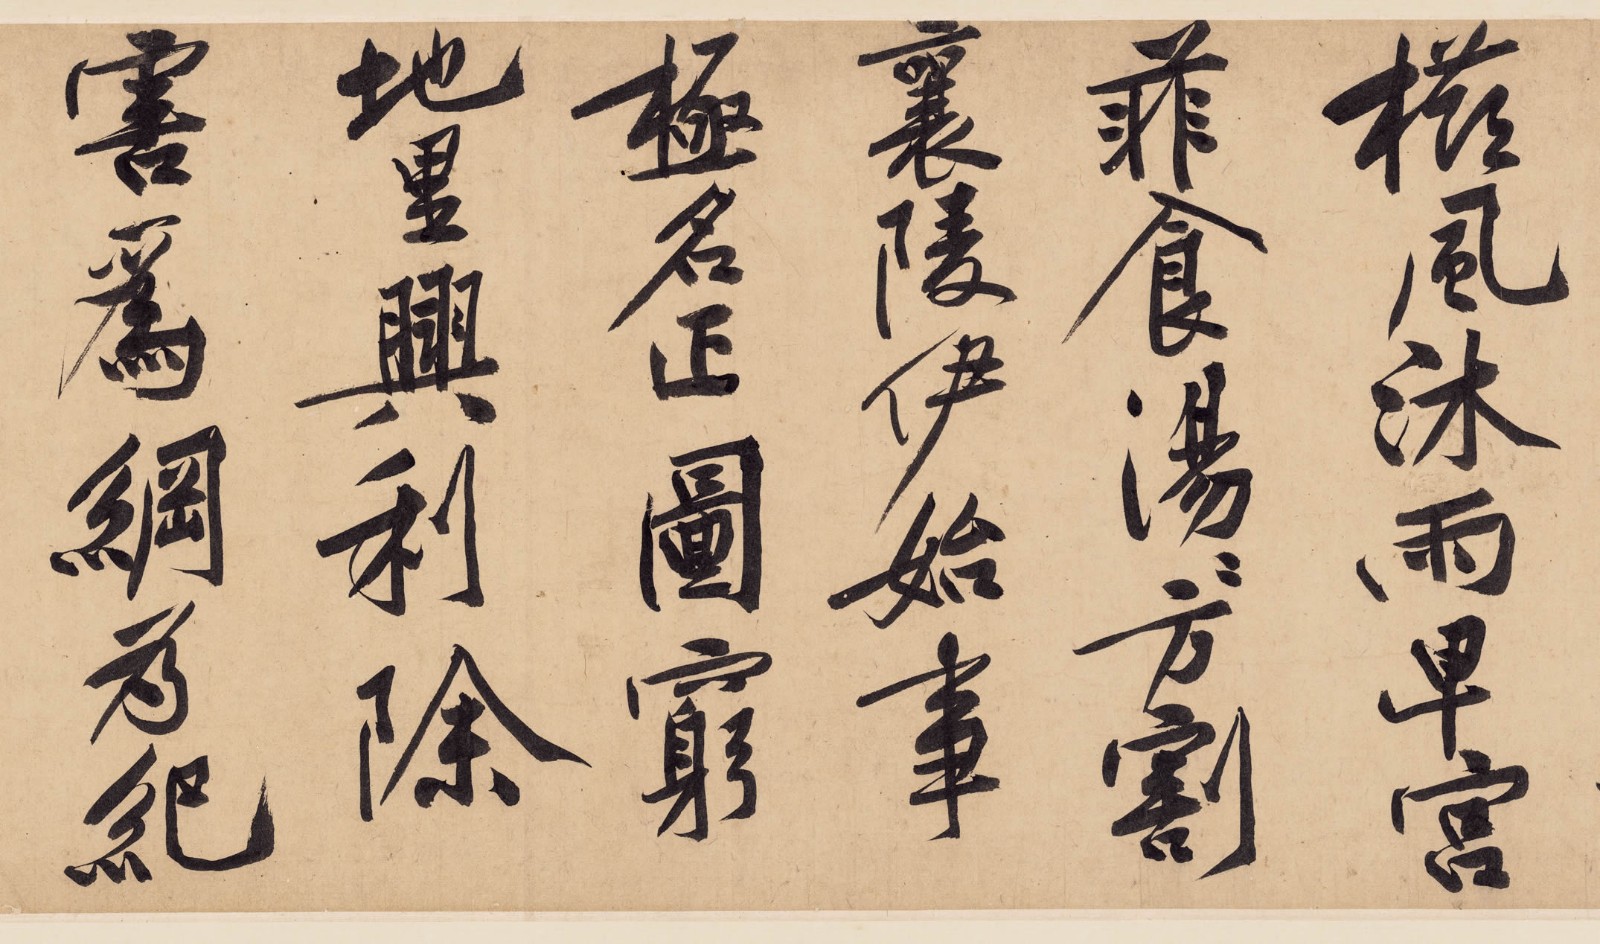 櫛風沐雨卑宮
菲食湯〻方割
襄陵伊始事
極名正圖窮
地里興利除
害爲綱為紀